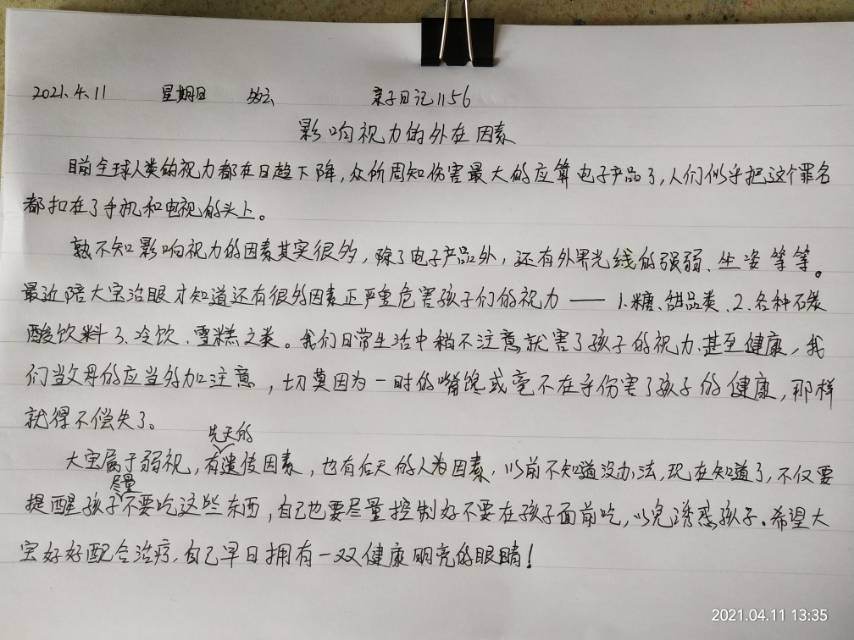 2021.4.11 星期日 多云 亲子日记1156
影响视力的外在因素
目前全球人类的视力都在日趋下降,众所周知伤害最大的应算电子产品了,人们似乎把这个罪名
都扣在了手机和电视的头上。
孰不知影响视力的因素其实很多,除了电子产品外,还有外界光线的强弱、坐姿等等。
最近陪大宝治眼才知道还有很多因素正严重危害孩子们的视力——1.糖、甜品类、2.各种碳
酸饮料3、冷饮、雪糕之类。我们日常生活中稍不注意就害了孩子的视力、甚至健康,我
们当父母的应当外加注意,切莫因为一时的嘴馋或毫不在乎伤害了孩子的健康,那样
就得不偿失了。
先天的
大宝属于弱视,有遗传因素,也有后天的人为因素,以前不知道没办法,现在知道了,不仅要
尽量
提醒孩子不要吃这些东西,自己也要尽量控制好不要在孩子面前吃,以免诱惑孩子。希望大
宝好好配合治疗,自己早日拥有一双健康明亮的眼睛!
2021.04.11 13:35